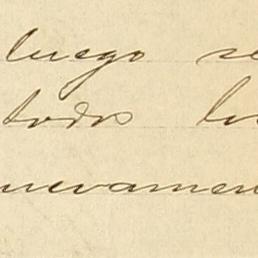 luego se
todos los
nuevamen